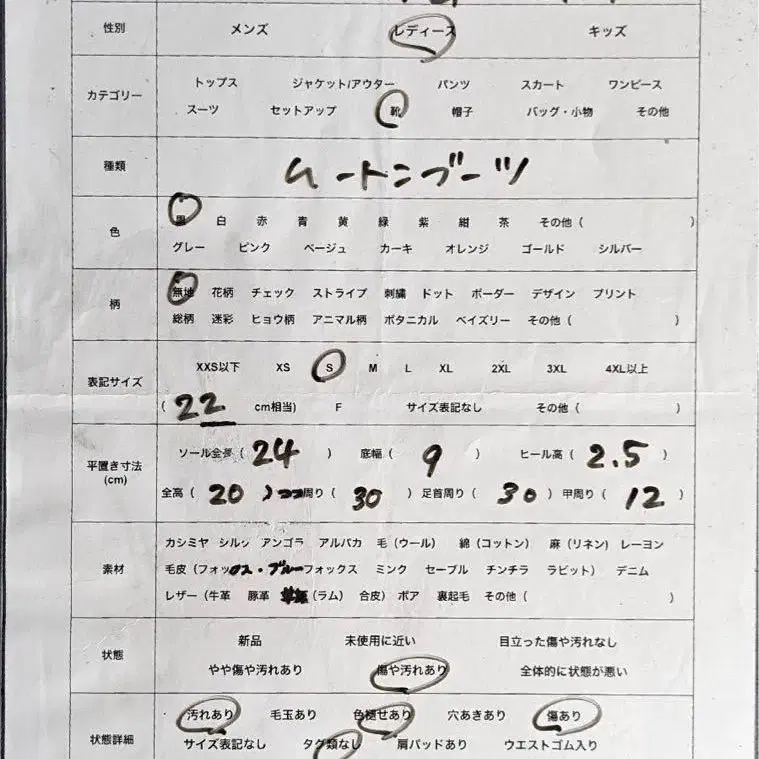 性別 メンズ レディース キッズ
カテゴリー トップス ジャケット/アウター パンツ スカート ワンピース
スーツ セットアップ 靴 帽子 バッグ・小物 その他
種類 ムートンブーツ
色 白 赤 青 黄 緑 紫 紺 茶 その他 ( )
グレー ピンク ベージュ カーキ オレンジ ゴールド シルバー
柄 無地 花柄 チェック ストライプ 刺繍 ドット ボーダー デザイン プリント
総柄 迷彩 ヒョウ柄 アニマル柄 ボタニカル ペイズリー その他 ( )
表記サイズ XXS以下 XS S M L XL 2XL 3XL 4XL以上
( 22 cm相当) F サイズ表記なし その他 ( )
平置き寸法 (cm) ソール全長 ( 24 ) 底幅 ( 9 ヒール高 ( 2.5 )
全高 ( 20 ) 周り ( 30 ) 足首周り ( 30 ) 甲周り ( 12 )
素材 カシミヤ シルク アンゴラ アルパカ 毛 (ウール) 綿 (コットン) 麻 (リネン) レーヨン
毛皮 (フォックス・ブルーフォックス ミンク セーブル チンチラ ラビット) デニム
レザー (牛革 豚革 (ラム) 合皮) ボア 裏起毛 その他 ( )
状態 新品 未使用に近い 目立った傷や汚れなし
やや傷や汚れあり 傷や汚れあり 全体的に状態が悪い
状態詳細 汚れあり 毛玉あり 色褪せあり 穴あきあり 傷あり
サイズ表記なし タグ類なし 肩パッドあり ウエストゴム入り